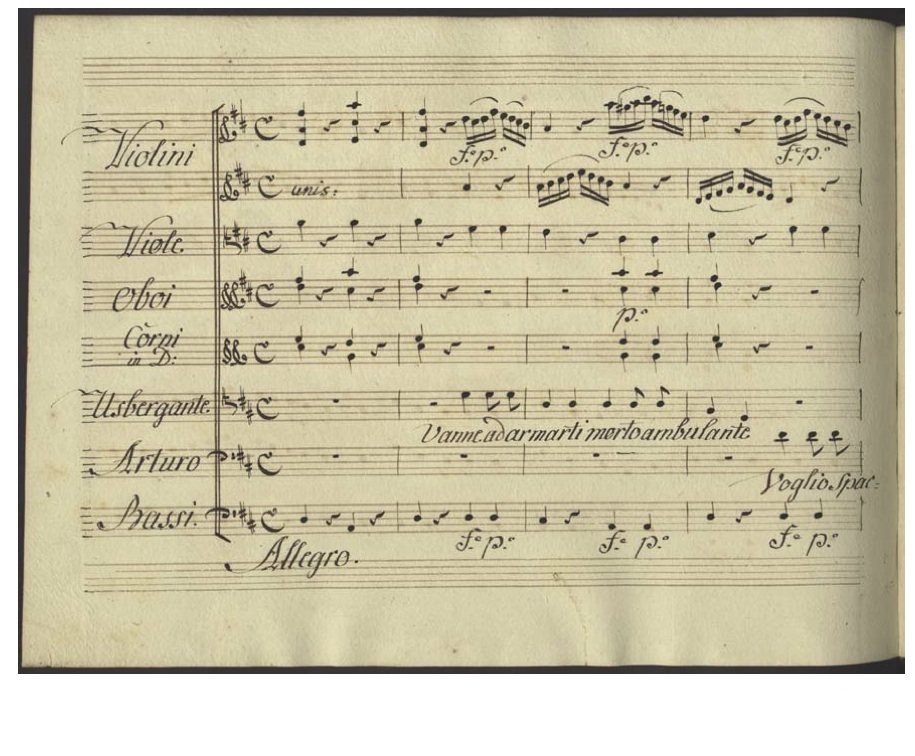 Violini
f.º p.º f.º p.º f.º p.º
unis:
Viole.
Oboi
p.º
Corni
in D:
Usbergante.
Vanne ad armarti morto ambulante
Arturo
Voglio Spac=
Bassi.
f.º p.º f.º p.º f.º p.º
Allegro.